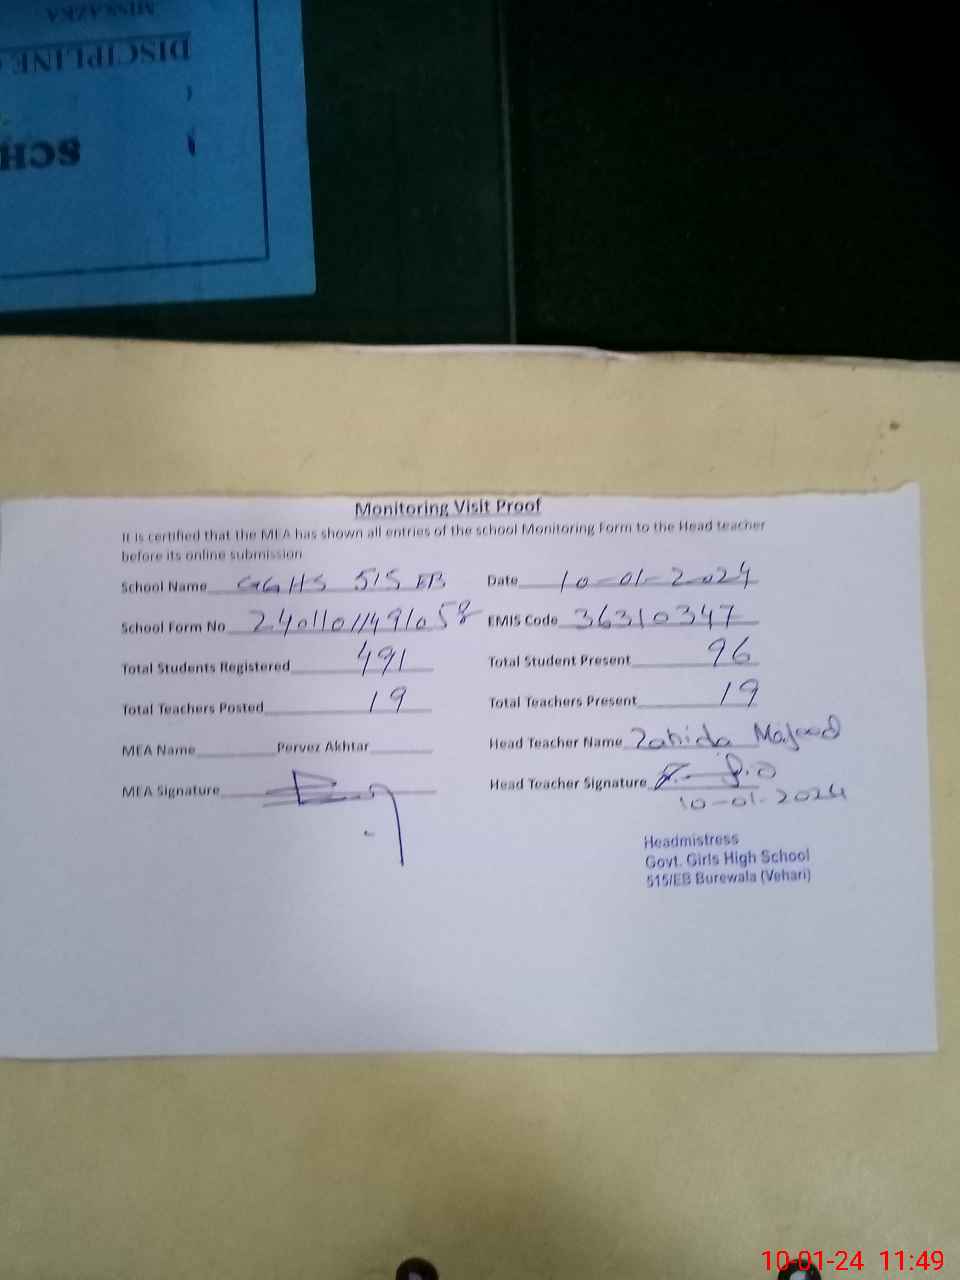 MISKAZKA
DISCIPLINE
SCH
Monitoring Visit Proof
It is certified that the MEA has shown all entries of the school Monitoring Form to the Head teacher
before its online submission
School Name GGHS 515 EB Date 10-01-2024
School Form No 24011011491058 EMIS Code 36310347
Total Students Registered 491 Total Student Present 96
Total Teachers Posted 19 Total Teachers Present 19
MEA Name Pervez Akhtar Head Teacher Name Zahida Majeed
MEA Signature Head Teacher Signature
10-01-2024
Headmistress
Govt. Girls High School
515/EB Burewala (Vehari)
10-01-24 11:49